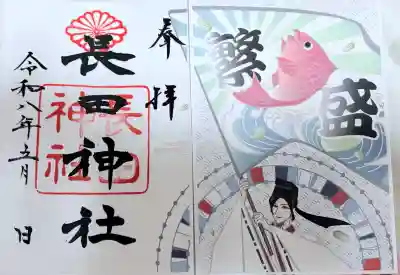 奉拝
長田神社
長田
神社
令和八年五月 日
繁盛